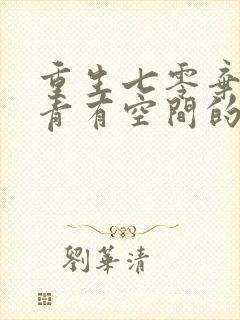 重生七零棄
青有空間的
劉華清